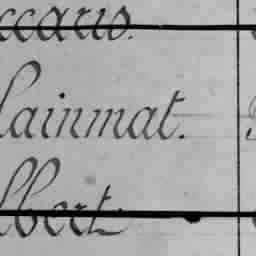 ccaris.
lainmat.
lbert.